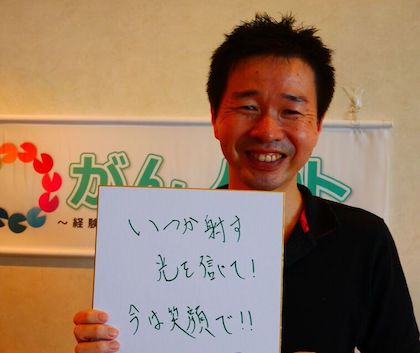 がん
〜経験
いつか射す
光を信じて!
今は笑顔で!!